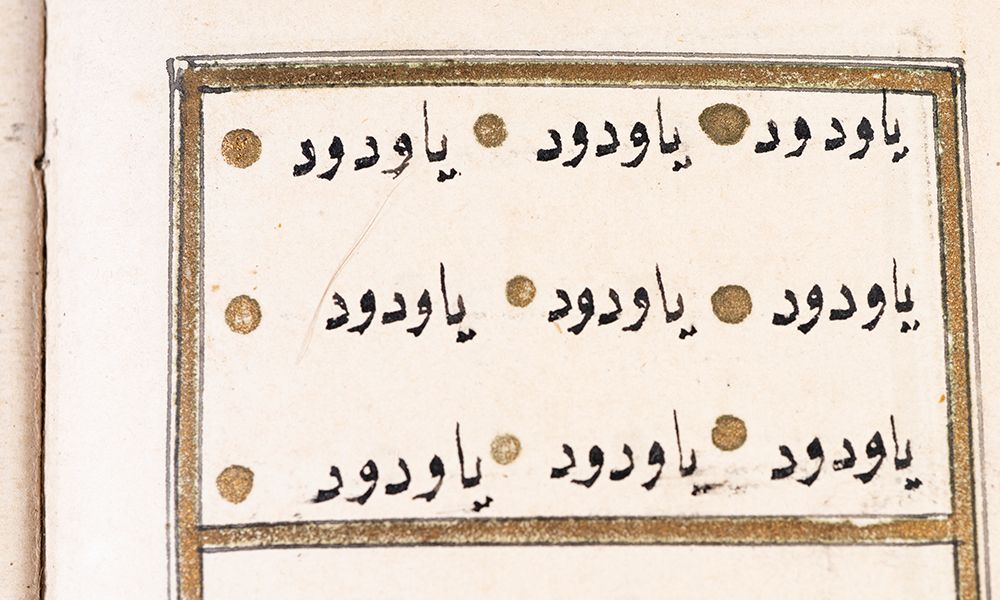 يا ودود يا ودود يا ودود
يا ودود يا ودود يا ودود
يا ودود يا ودود يا ودود